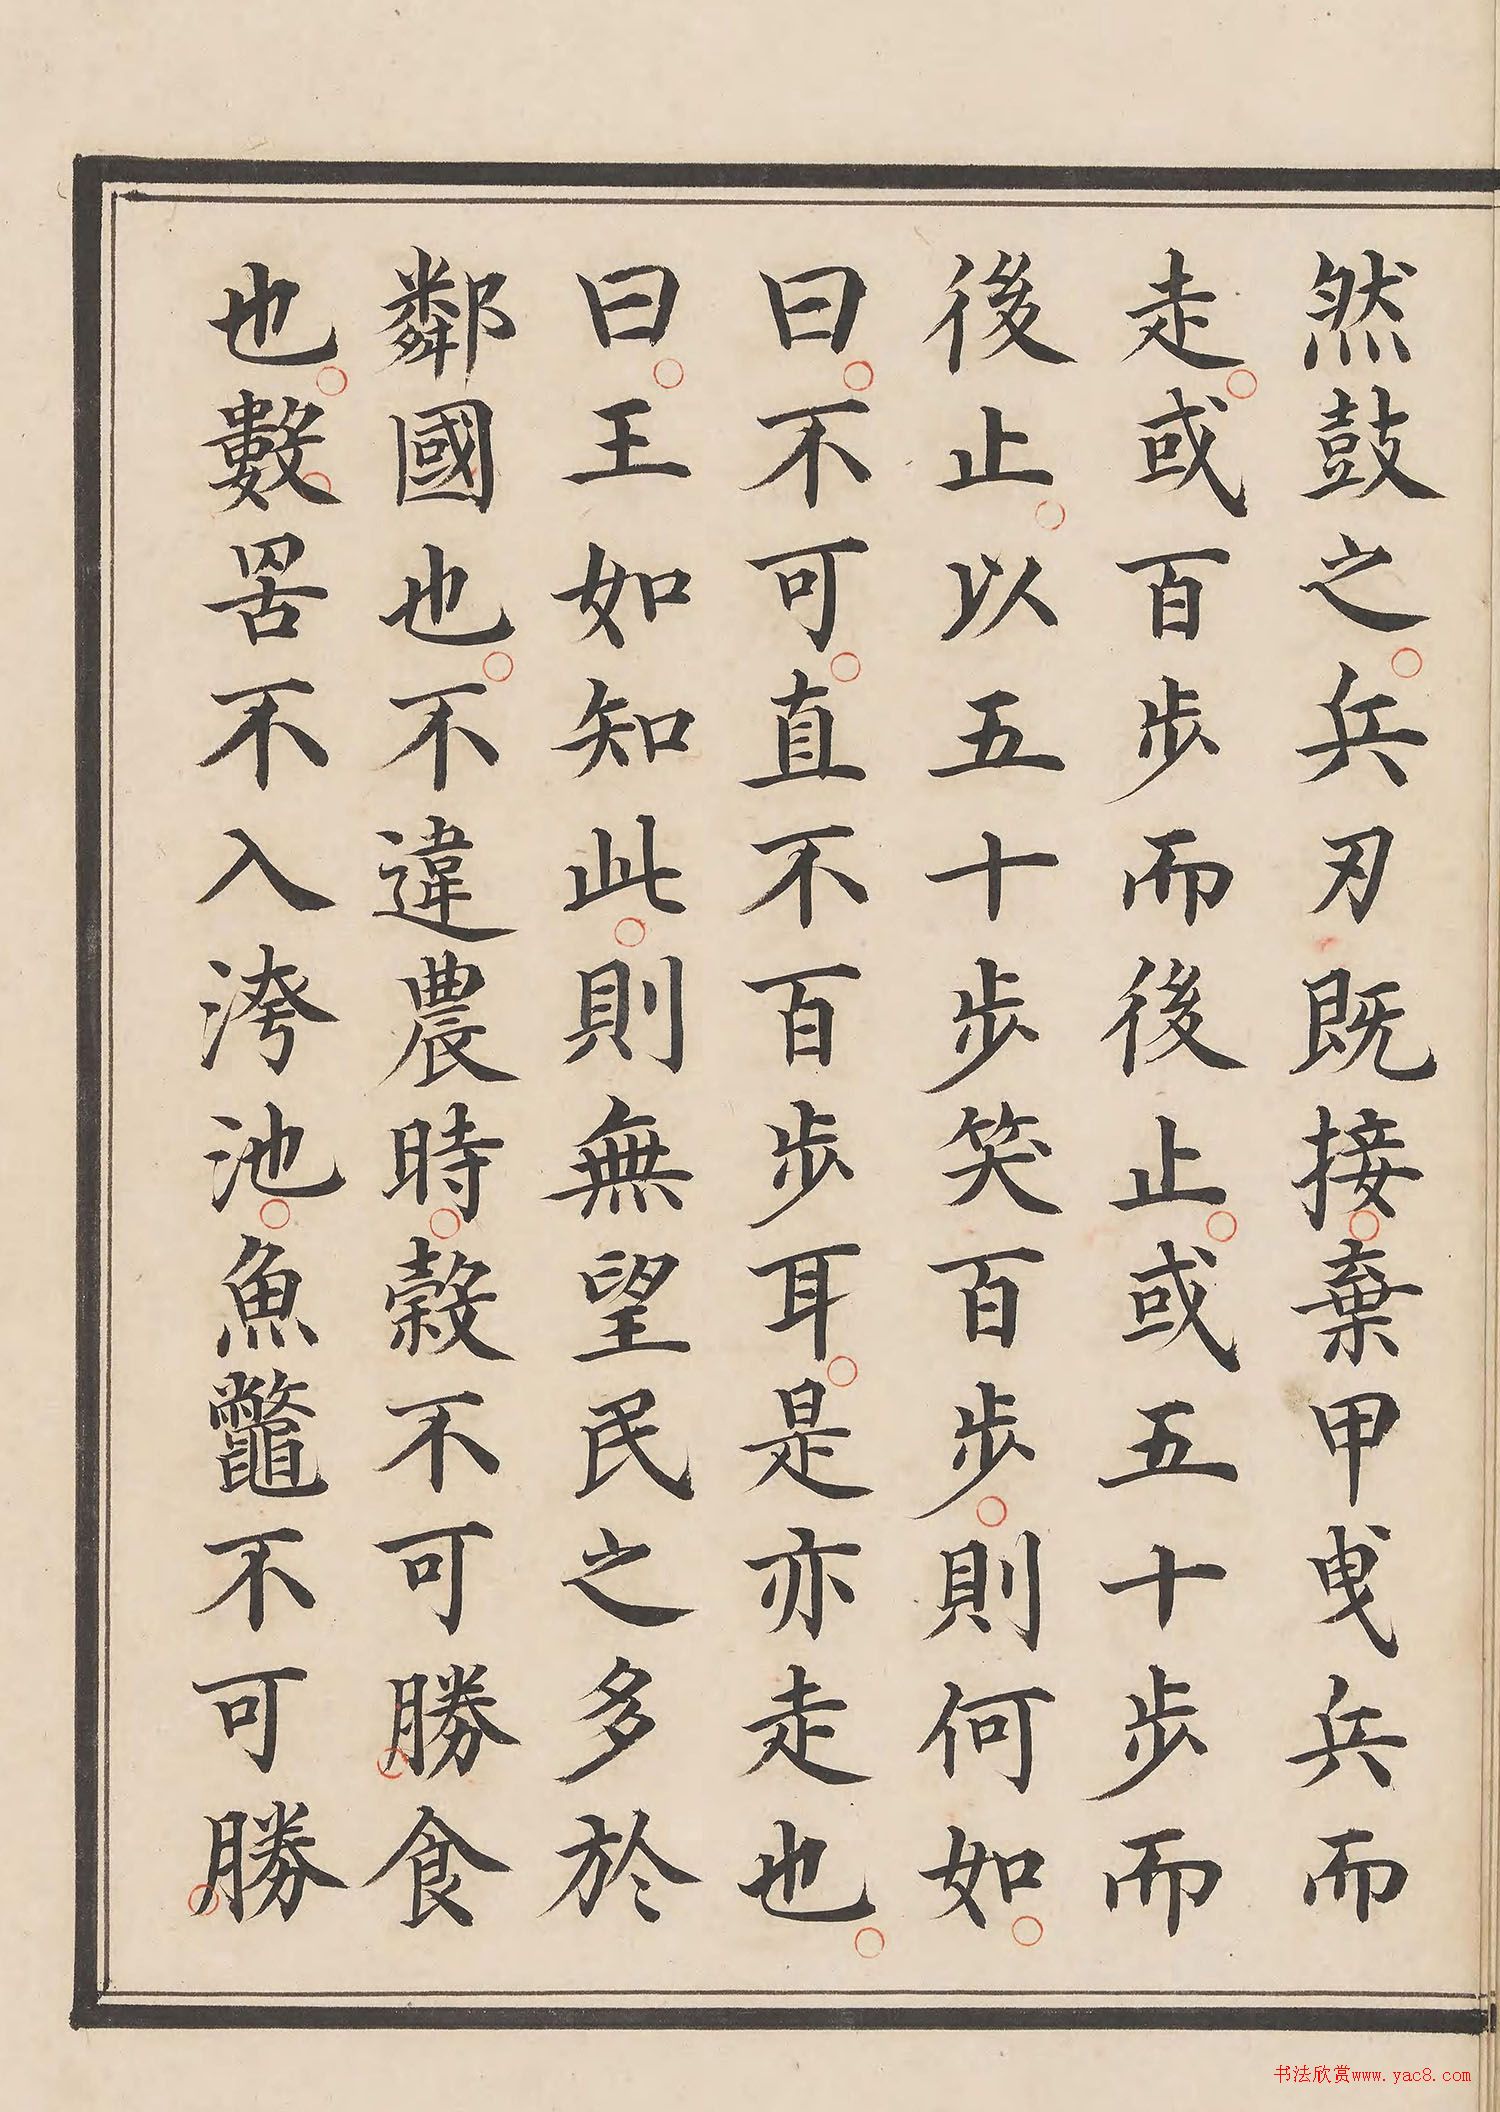 然鼓之兵刃既接棄甲曳兵而
走或百步而後止或五十步而
後止以五十步笑百步則何如
曰不可直不百步耳是亦走也
曰王如知此則無望民之多於
鄰國也不違農時穀不可勝食
也數罟不入洿池魚鼈不可勝
书法欣赏www.yac8.com